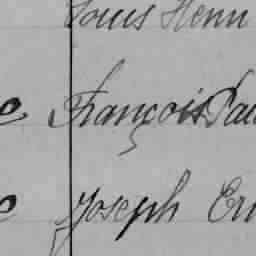 Louis Henri
François Pau
Joseph Ern